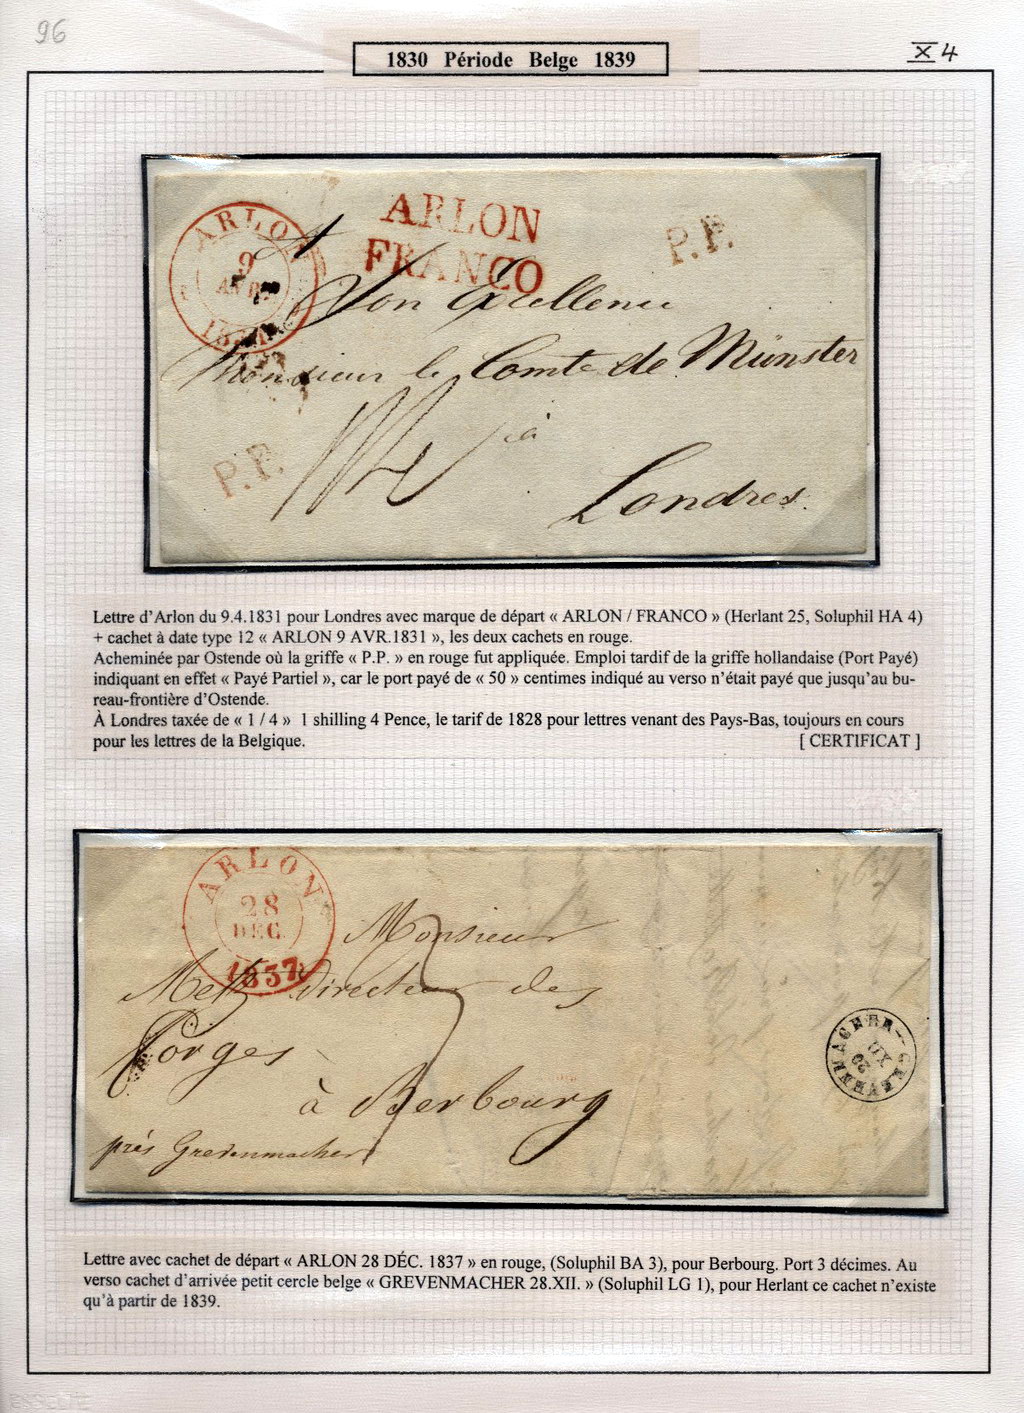 96
X 4
1830 Période Belge 1839
ARLON
9
AVR.
1831
ARLON
FRANCO
P.P.
A
Son Excellence
Monsieur le Comte de Münster
à
Londres.
P.P.
Lettre d'Arlon du 9.4.1831 pour Londres avec marque de départ « ARLON / FRANCO » (Herlant 25, Soluphil HA 4)
+ cachet à date type 12 « ARLON 9 AVR.1831 », les deux cachets en rouge.
Acheminée par Ostende où la griffe « P.P. » en rouge fut appliquée. Emploi tardif de la griffe hollandaise (Port Payé)
indiquant en effet « Payé Partiel », car le port payé de « 50 » centimes indiqué au verso n'était payé que jusqu'au bu-
reau-frontière d'Ostende.
À Londres taxée de « 1 / 4 » 1 shilling 4 Pence, le tarif de 1828 pour lettres venant des Pays-Bas, toujours en cours
pour les lettres de la Belgique. [ CERTIFICAT ]
ARLON
28
DEC.
1837
Monsieur
Metz directeur des
Forges
à Berbourg
près Grevenmacher
GREVENMACHER
XII
Lettre avec cachet de départ « ARLON 28 DÉC. 1837 » en rouge, (Soluphil BA 3), pour Berbourg. Port 3 décimes. Au
verso cachet d'arrivée petit cercle belge « GREVENMACHER 28.XII. » (Soluphil LG 1), pour Herlant ce cachet n'existe
qu'à partir de 1839.